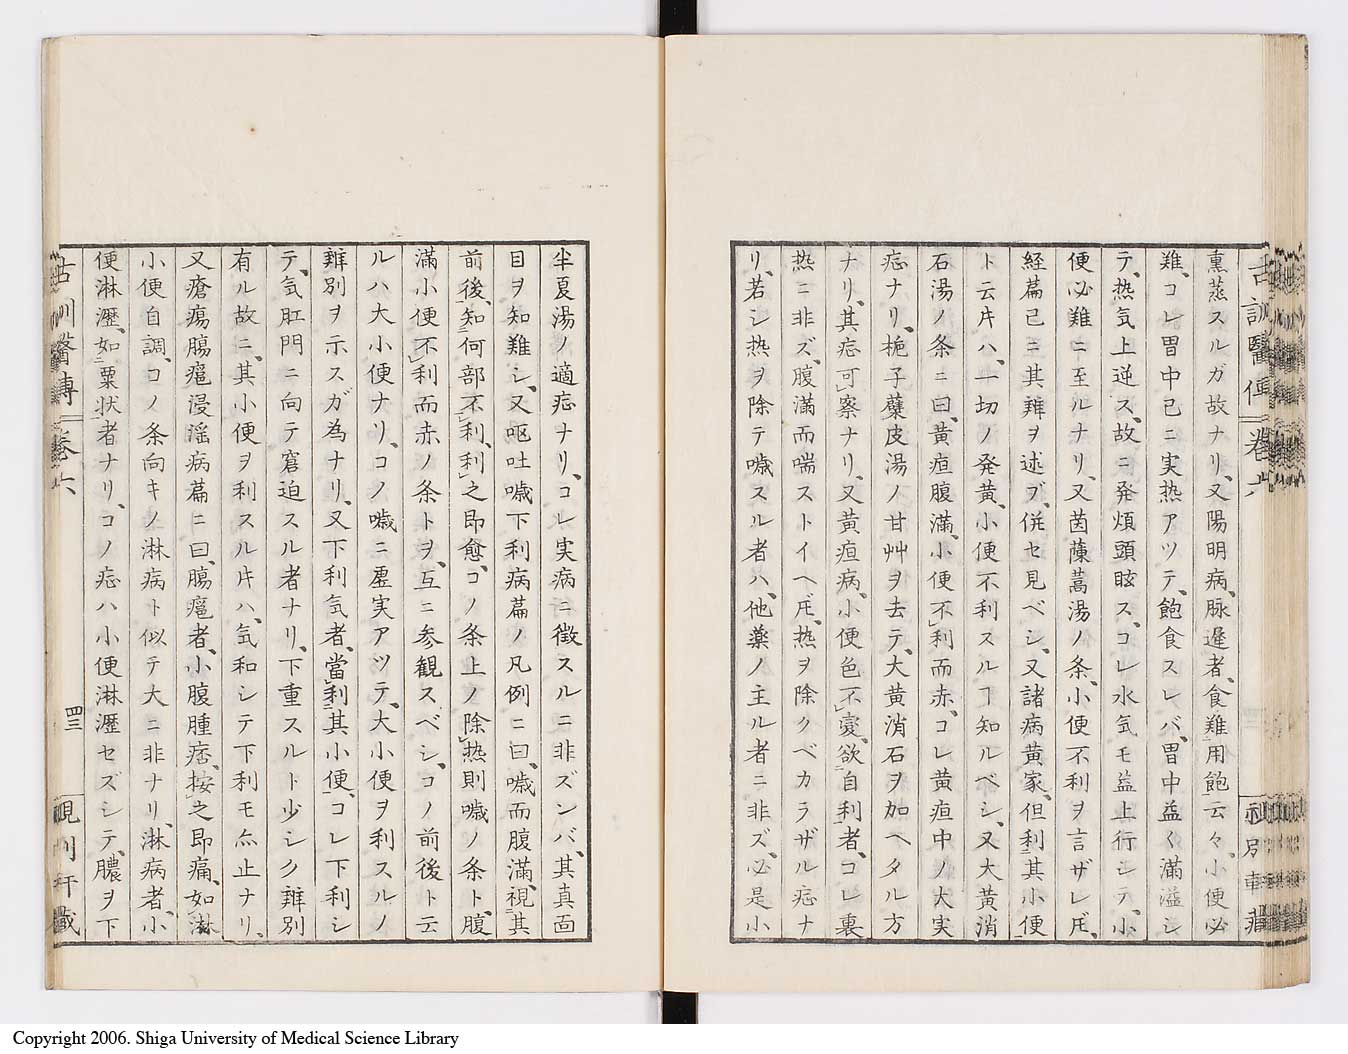 熏蒸スルガ故ナリ、又陽明病、脉遲者、食難用飽云々、小便必
難、コレ胃中已ニ実热アツテ、飽食スレバ、胃中益〱満溢シ
テ、热気上逆ス、故ニ発煩頭眩ス、コレ水気モ益上行シテ、小
便必難ニ至ルナリ、又茵蔯蒿湯ノ条、小便不利ヲ言ザレ𪜈、
経篇已ニ其辨ヲ述ブ、併セ見ベシ、又諸病黄家、但利其小便
ト云片ハ、一切ノ発黄、小便不利スルヿ知ルベシ、又大黄消
石湯ノ条ニ曰、黄疸腹満、小便不利而赤、コレ黄疸中ノ大実
症ナリ、梔子蘗皮湯ノ甘艸ヲ去テ、大黄消石ヲ加ヘタル方
ナリ、其症可察ナリ、又黄疸病、小便色不変、欲自利者、コレ裏
热ニ非ズ、腹満而喘ストイヘ𪜈、热ヲ除クベカラザル症ナ
リ、若シ热ヲ除テ噦スル者ハ、他薬ノ主ル者ニ非ズ、必是小
半夏湯ノ適症ナリ、コレ実病ニ徴スルニ非ズンバ、其真面
目ヲ知難シ、又嘔吐噦下利病篇ノ凡例ニ曰、噦而腹満、視其
前後、知何部不利、利之即愈、コノ条上ノ除热則噦ノ条ト、腹
満小便不利而赤ノ条トヲ、互ニ参観スベシ、コノ前後ト云
ルハ大小便ナリ、コノ噦ニ虚実アツテ、大小便ヲ利スルノ
辨別ヲ示スガ為ナリ、又下利気者、當利其小便、コレ下利シ
テ、気肛門ニ向テ窘迫スル者ナリ、下重スルト少シク辨別
有ル故ニ、其小便ヲ利スル片ハ、気和シテ下利モ亦止ナリ、
又瘡瘍腸癰浸淫病篇ニ曰、腸癰者、小腹腫痞、按之即痛、如淋
小便自調、コノ条向キノ淋病ト似テ大ニ非ナリ、淋病者、小
便淋瀝、如粟状者ナリ、コノ症ハ小便淋瀝セズシテ、膿ヲ下
古訓醫傳
卷六
四三
Copyright 2006. Shiga University of Medical Science Library